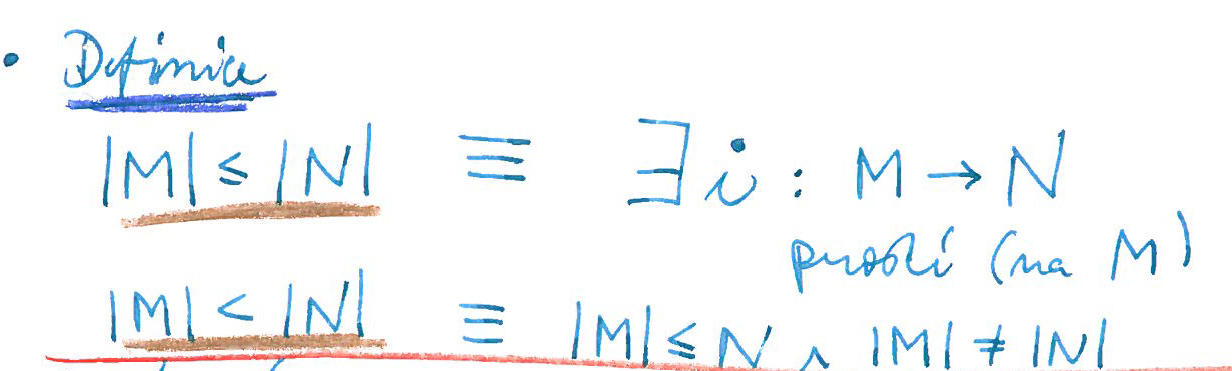 • Definice
|M| ≤ |N| ≡ ∃ i : M → N
prosté (na M)
|M| < |N| ≡ |M| ≤ N ∧ |M| ≠ |N|